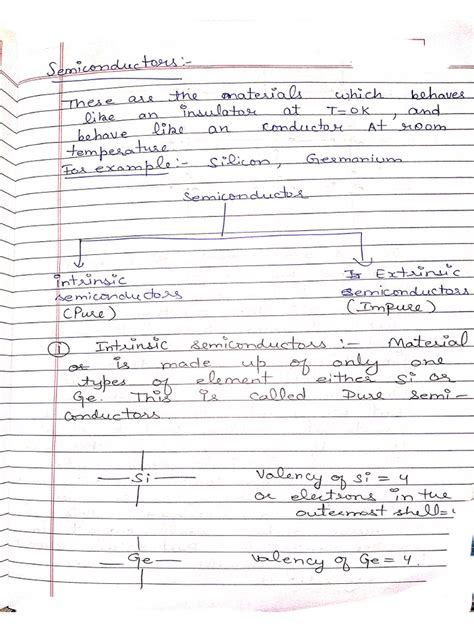 Semiconductors:-
These are the materials which behaves
like an insulator at T=0K, and
behave like an conductor At room
temperature
For example:- Silicon, Germanium
Semiconductor
intrinsic
semiconductors
(Pure)
Extrinsic
semiconductors
(Impure)
① Intrinsic semiconductors:- Material
is made up of only one
types of element either Si or
Ge. This is called Pure semi-
conductors
Si
Valency of Si = 4
or electrons in the
outermost shell=
Ge
Valency of Ge = 4.